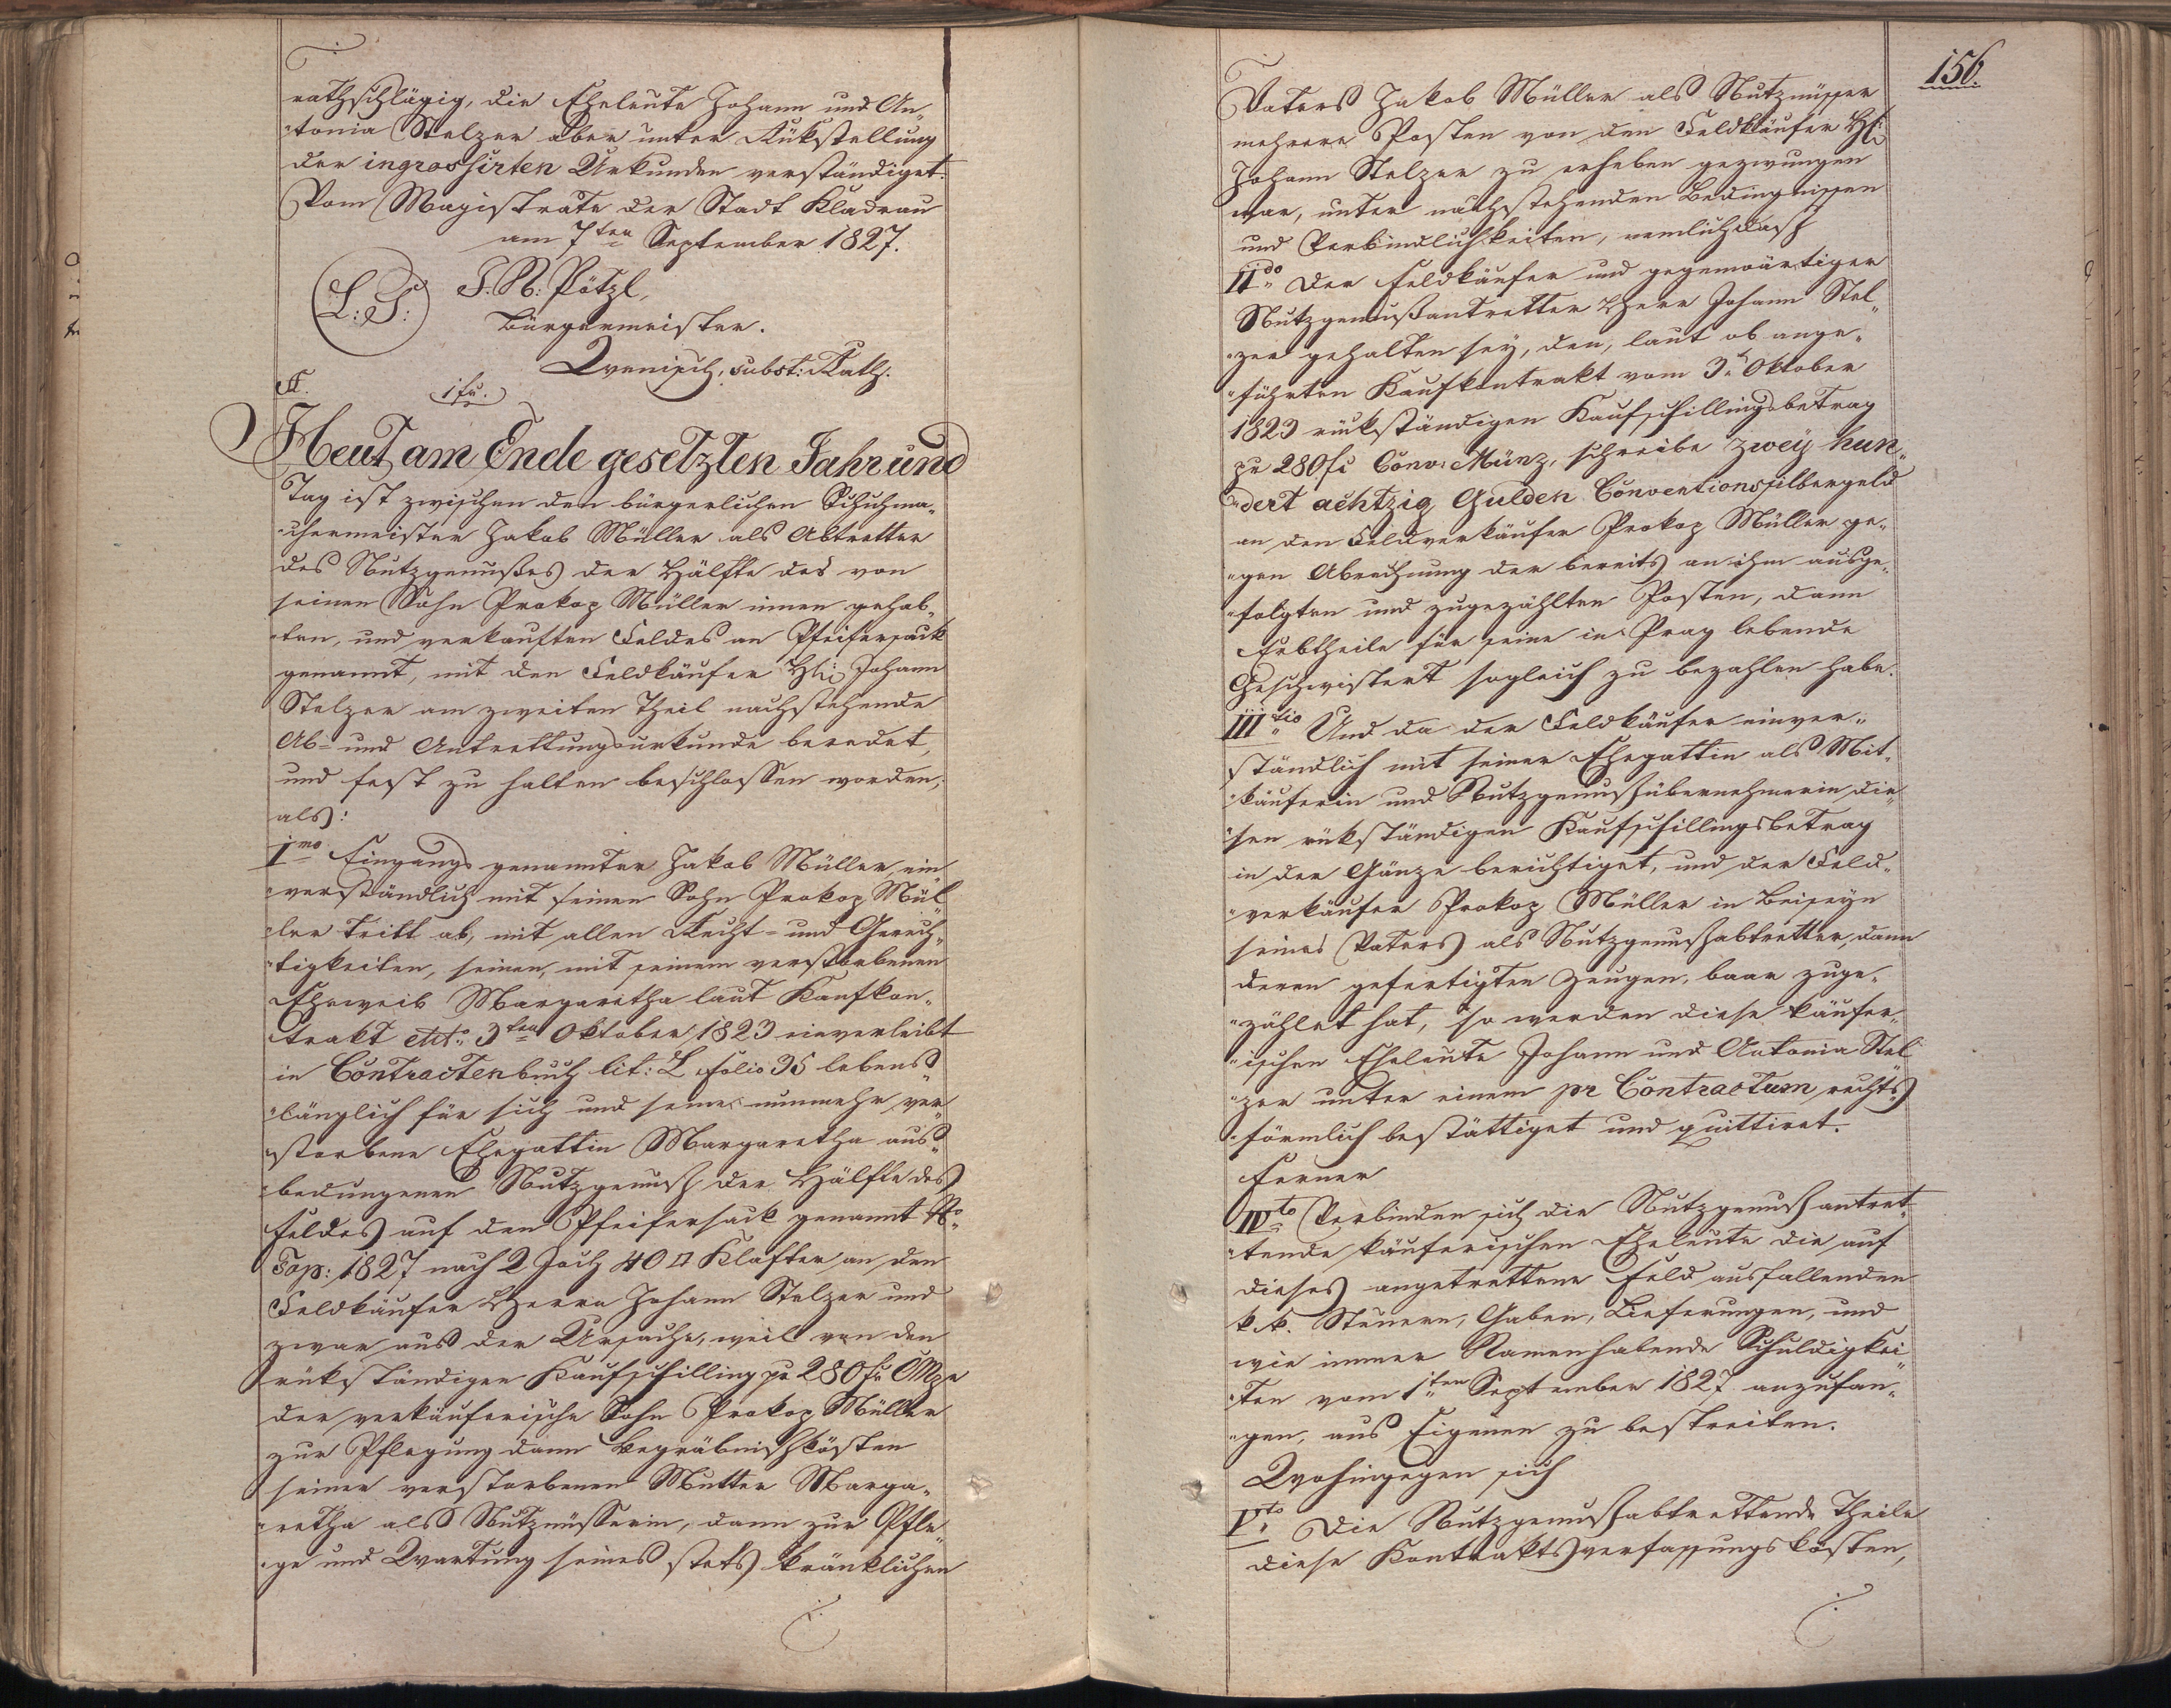 rathschlägig, die Eheleute Johann und An„
„tonia Stelzer aber unter Rükstellung
der ingrossirten Urkunden verständiget.
Vom Magistrate der Stadt Kladrau
am 7ten September 1827.
(L:S:) J. N: Pötzl,
Bürgermeister.
subst: Rath.
1 fr.
Heut am Ende gesetzten Jahr und
Tag ist zwischen den bürgerlichen Schuhma„
„chermeister Jakob Müller als Abtretter
des Nutzgenußes der Hälfte des von
seinen Sohn Prokop Müller innen gehab„
„ten, und verkauften Feldes am Pfeifersack
genannt, mit den Feldkäufer H: Johann
Stelzer am zweiten Theil nachstehende
Ab- und Antrettungsurkunde beredet,
und fest zu halten beschlossen worden,
als:
Imo Eingangs genannter Jakob Müller, ein„
„verständlich mit seinen Sohn Prokop Mül„
„ler tritt ab, mit allen Recht- und Gerech„
„tigkeiten, seinen, mit seinem verstorbenen
Eheweib Margaretha laut Kaufkon„
„trakt ddto: 3ten Oktober 1823 einverleibt
in Contractenbuch lit: L folio 35 lebens„
„länglich für sich und seine nunmehr ver„
„storbene Ehegattin Margaretha aus„
„bedungenen Nutzgenuß der Hälfte des
Feldes auf den Pfeifersack genannt No:
Top: 1827 nach 2 Joch 40 □ Klafter an den
Feldkäufer Herrn Johann Stelzer und
zwar aus der Ursache, weil von den
rükständigen Kaufschilling pr 280 fr CMze
der verkäuferische Sohn Prokop Müller
zur Pflegung dann Begräbnißkösten
seiner verstorbenen Mutter Marga„
„retha als Nutznüsserin, dann zur Pfle„
„ge und Wartung seines stets kränklichen
156.
Vaters Jakob Müller als Nutznüsser
mehrere Posten von den Feldkäufer H:
Johann Stelzer zu erheben gezwungen
war, unter nachstehenden Bedingnissen
und Verbindlichkeiten, nemlich daß
IIdo Der Feldkäufer und gegenwärtiger
Nutzgenußantretter Herr Johann Stel„
„zer gehalten sey, den, laut ob ange„
„führten Kaufkontrakt vom 3t Oktober
1823 rükständigen Kaufschillingsbetrag
pr 280 fr Conv: Münz, schreibe zwey hun„
„dert achtzig Gulden Conventionssilbergeld
an den Feldverkäufer Prokop Müller ge„
„gen Abrechnung der bereits an ihm ausge„
„folgten und zugezählten Posten, dann
Erbtheile für seine in Prag lebende
Geschwistert sogleich zu bezahlen habe.
IIItio Und da der Feldkäufer einver„
„ständlich mit seiner Ehegattin als Mit„
„käuferin und Nutzgenußübernehmerin die„
„sen rükständigen Kaufschillingsbetrag
in der Gänze berichtiget, und der Feld„
„verkäufer Prokop Müller in Beiseyn
seines Vaters als Nutzgenußabtretter, dann
deren gefertigten Zeugen, baar zuge„
„zählet hat, so werden diese käufer„
„ischen Eheleute Johann und Antonia Stel„
„zer unter einem pr Contractum rechts„
„förmlich bestättiget und quittiret.
Ferner
IVto Verbinden sich die Nutzgenußantret„
„tende käuferischen Eheleute die auf
dieses angetrettene Feld ausfallenden
k. k. Steuern, Gaben, Lieferungen, und
wie immer Namenhabende Schuldigkei„
„ten vom 1ten September 1827 anzufan„
„gen, aus Eigenen zu bestreiten.
Wohingegen sich
Vto Die Nutzgenußabtrettende Theile
diese Kontraktsverfassungskösten,